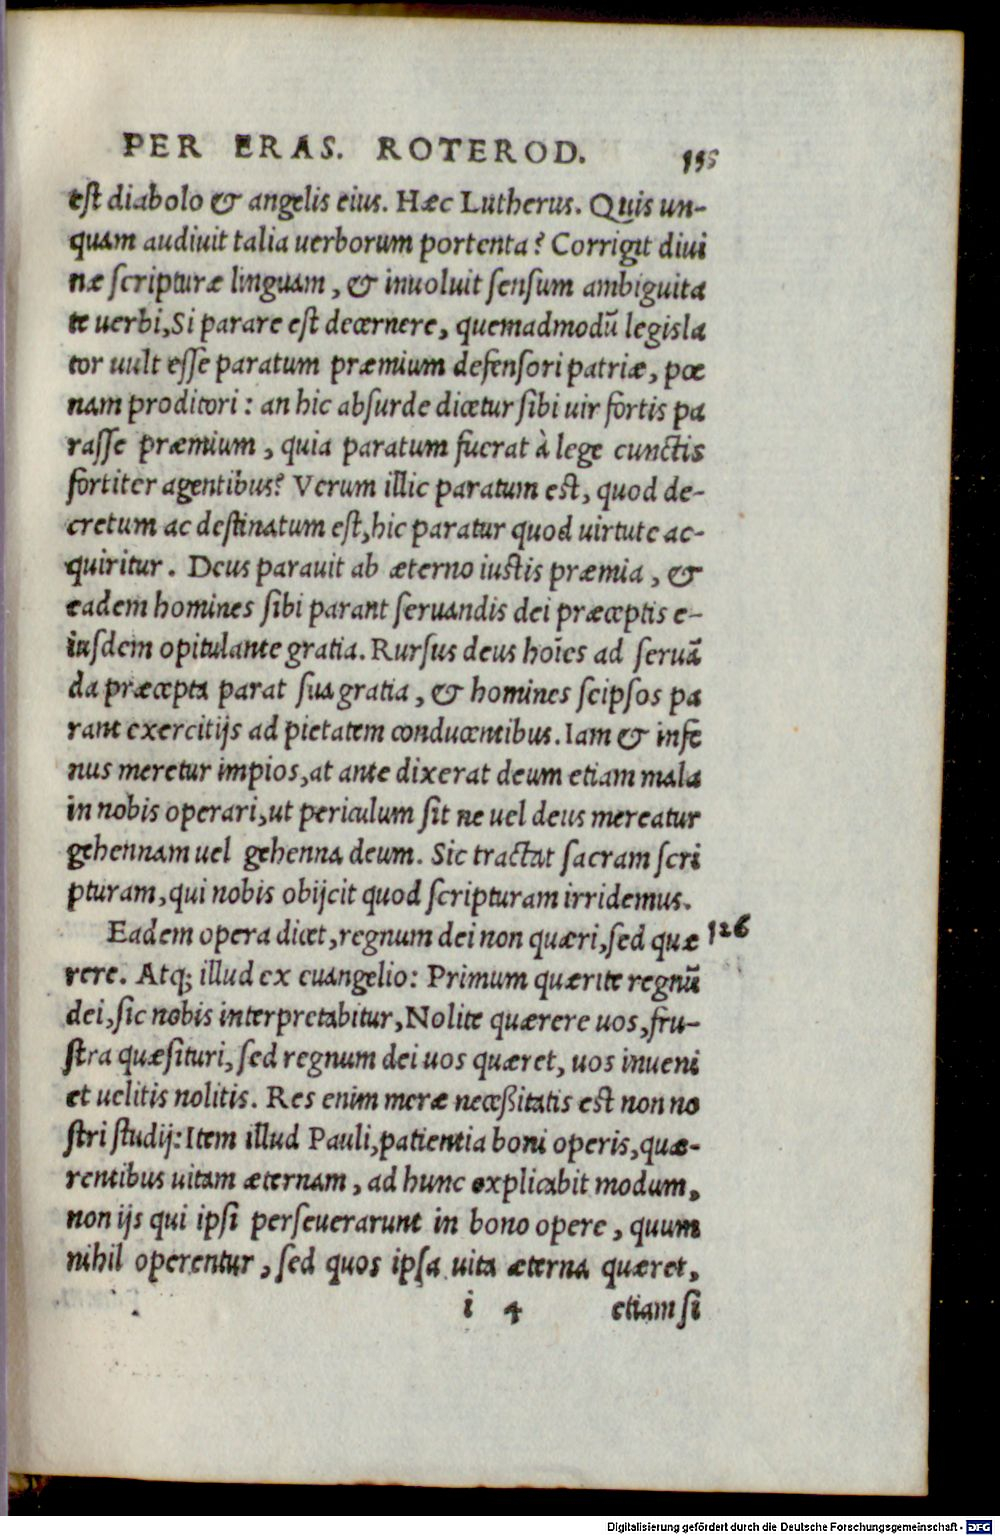 PER ERAS. ROTEROD. 135
est diabolo & angelis eius. Hæc Lutherus. Quis un-
quam audiuit talia uerborum portenta? Corrigit diui
næ scripturæ linguam, & inuoluit sensum ambiguita
te uerbi, Si parare est decernere, quemadmodũ legisla
tor uult esse paratum præmium defensori patriæ, pœ
nam proditori: an hic absurde dicetur sibi uir fortis pa
rasse præmium, quia paratum fuerat à lege cunctis
fortiter agentibus? Verum illic paratum est, quod de-
cretum ac destinatum est, hic paratur quod uirtute ac-
quiritur. Deus parauit ab æterno iustis præmia, &
eadem homines sibi parant seruandis dei præceptis e-
iusdem opitulante gratia. Rursus deus hoĩes ad seruã
da præcepta parat sua gratia, & homines seipsos pa
rant exercitijs ad pietatem conducentibus. Iam & infe
nus meretur impios, at ante dixerat deum etiam mala
in nobis operari, ut periculum sit ne uel deus mereatur
gehennam uel gehenna deum. Sic tractat sacram scri
pturam, qui nobis obijcit quod scripturam irridemus.
Eadem opera dicet, regnum dei non quæri, sed quæ 126
rere. Atq; illud ex euangelio: Primum quærite regnũ
dei, sic nobis interpretabitur, Nolite quærere uos, fru-
stra quæsituri, sed regnum dei uos quæret, uos inueni
et uelitis nolitis. Res enim meræ necessitatis est non no
stri studij: Item illud Pauli, patientia boni operis, quæ-
rentibus uitam æternam, ad hunc explicabit modum,
non ijs qui ipsi perseuerarunt in bono opere, quum
nihil operentur, sed quos ipsa uita æterna quæret,
i 4 etiam si
Digitalisierung gefördert durch die Deutsche Forschungsgemeinschaft - DFG